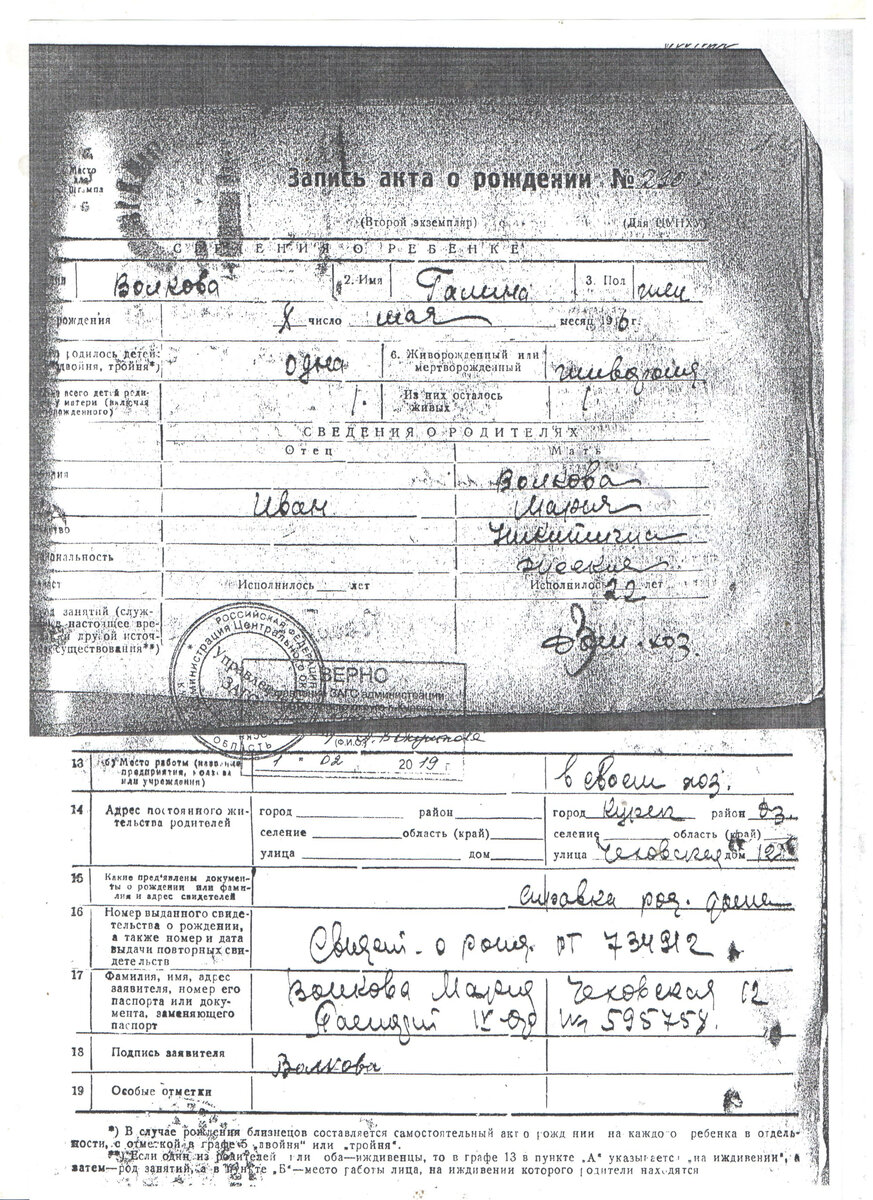 Место
для
штампа
Запись акта о рождении №
(Второй экземпляр) (Для ЦУНХУ)
СВЕДЕНИЯ О РЕБЕНКЕ
Волкова 2. Имя Галина 3. Пол жен
рождения 8 число мая месяц 19 г.
родилось детей: одна 6. Живорожденный или
двойня, тройня*) мертворожденный живорожд
всего детей роди- 1. Из них осталось 1
у матери (включая живых
рожденного)
СВЕДЕНИЯ О РОДИТЕЛЯХ
Отец Мать
Волкова
Иван Мария
Никитична
ональность русская
Исполнилось лет Исполнилось 22 лет
занятий (служ-
настоящее вре-
и другой источ-
существования**) Дом. хоз.
РОССИЙСКАЯ ФЕДЕРАЦИЯ
Администрация Центрального
Управление
ЗАГС
ОБЛАСТЬ
ВЕРНО
ЗАГС администрации
1 " 02 2019 г
13 б) Место работы (название
предприятия, колхоза
или учреждения) в своем хоз.
14 Адрес постоянного жи-
тельства родителей
город район город Курск район Дз.
селение область (край) селение область (край)
улица дом улица Чеховская дом 12
15 Какие предъявлены докумен-
ты о рождении или фами-
лия и адрес свидетелей справка род. дома
16 Номер выданного свиде-
тельства о рождении,
а также номер и дата
выдачи повторных сви-
детельств Свидет. о рожд. РТ 734912
17 Фамилия, имя, адрес
заявителя, номер его
паспорта или доку-
мента, заменяющего
паспорт
Волкова Мария Чеховская 12
№ 595758.
18 Подпись заявителя Волкова
19 Особые отметки
*) В случае рождения близнецов составляется самостоятельный акт о рождении на каждого ребенка в отдель-
ности, с отметкой в графе 5 „двойня" или „тройня".
**) Если один из родителей или оба—иждивенцы, то в графе 13 в пункте „А" указывается „на иждивении", а
затем—род занятий, а в пункте „Б"—место работы лица, на иждивении которого родители находятся